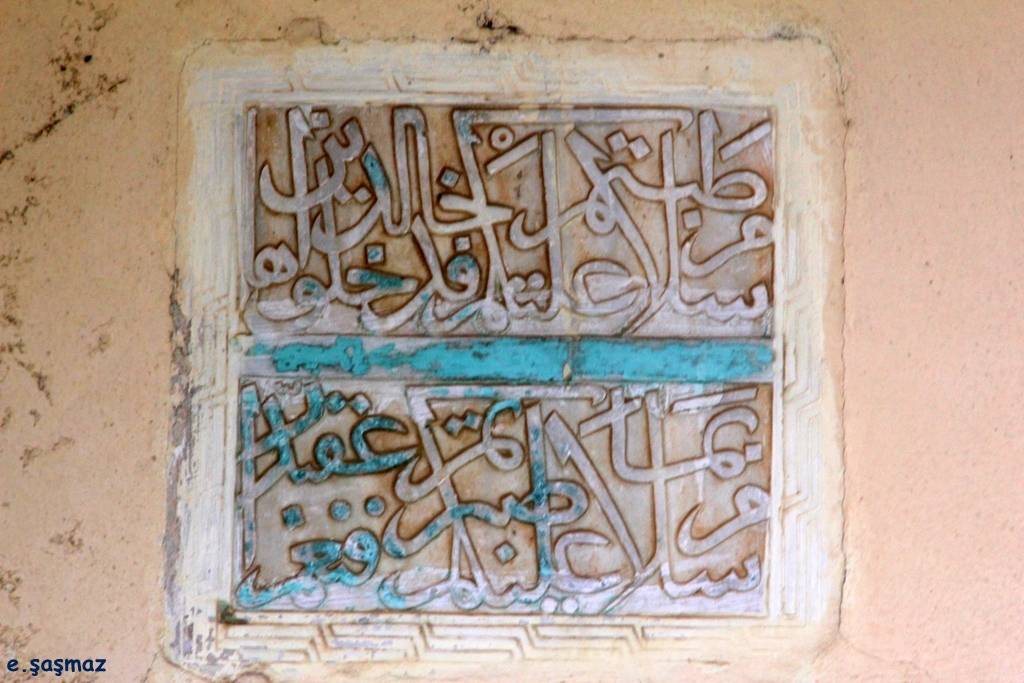 سلام عليكم طبتم فادخلوها خالدين
سلام عليكم بما صبرتم فنعم عقبى الدار
e.şaşmaz